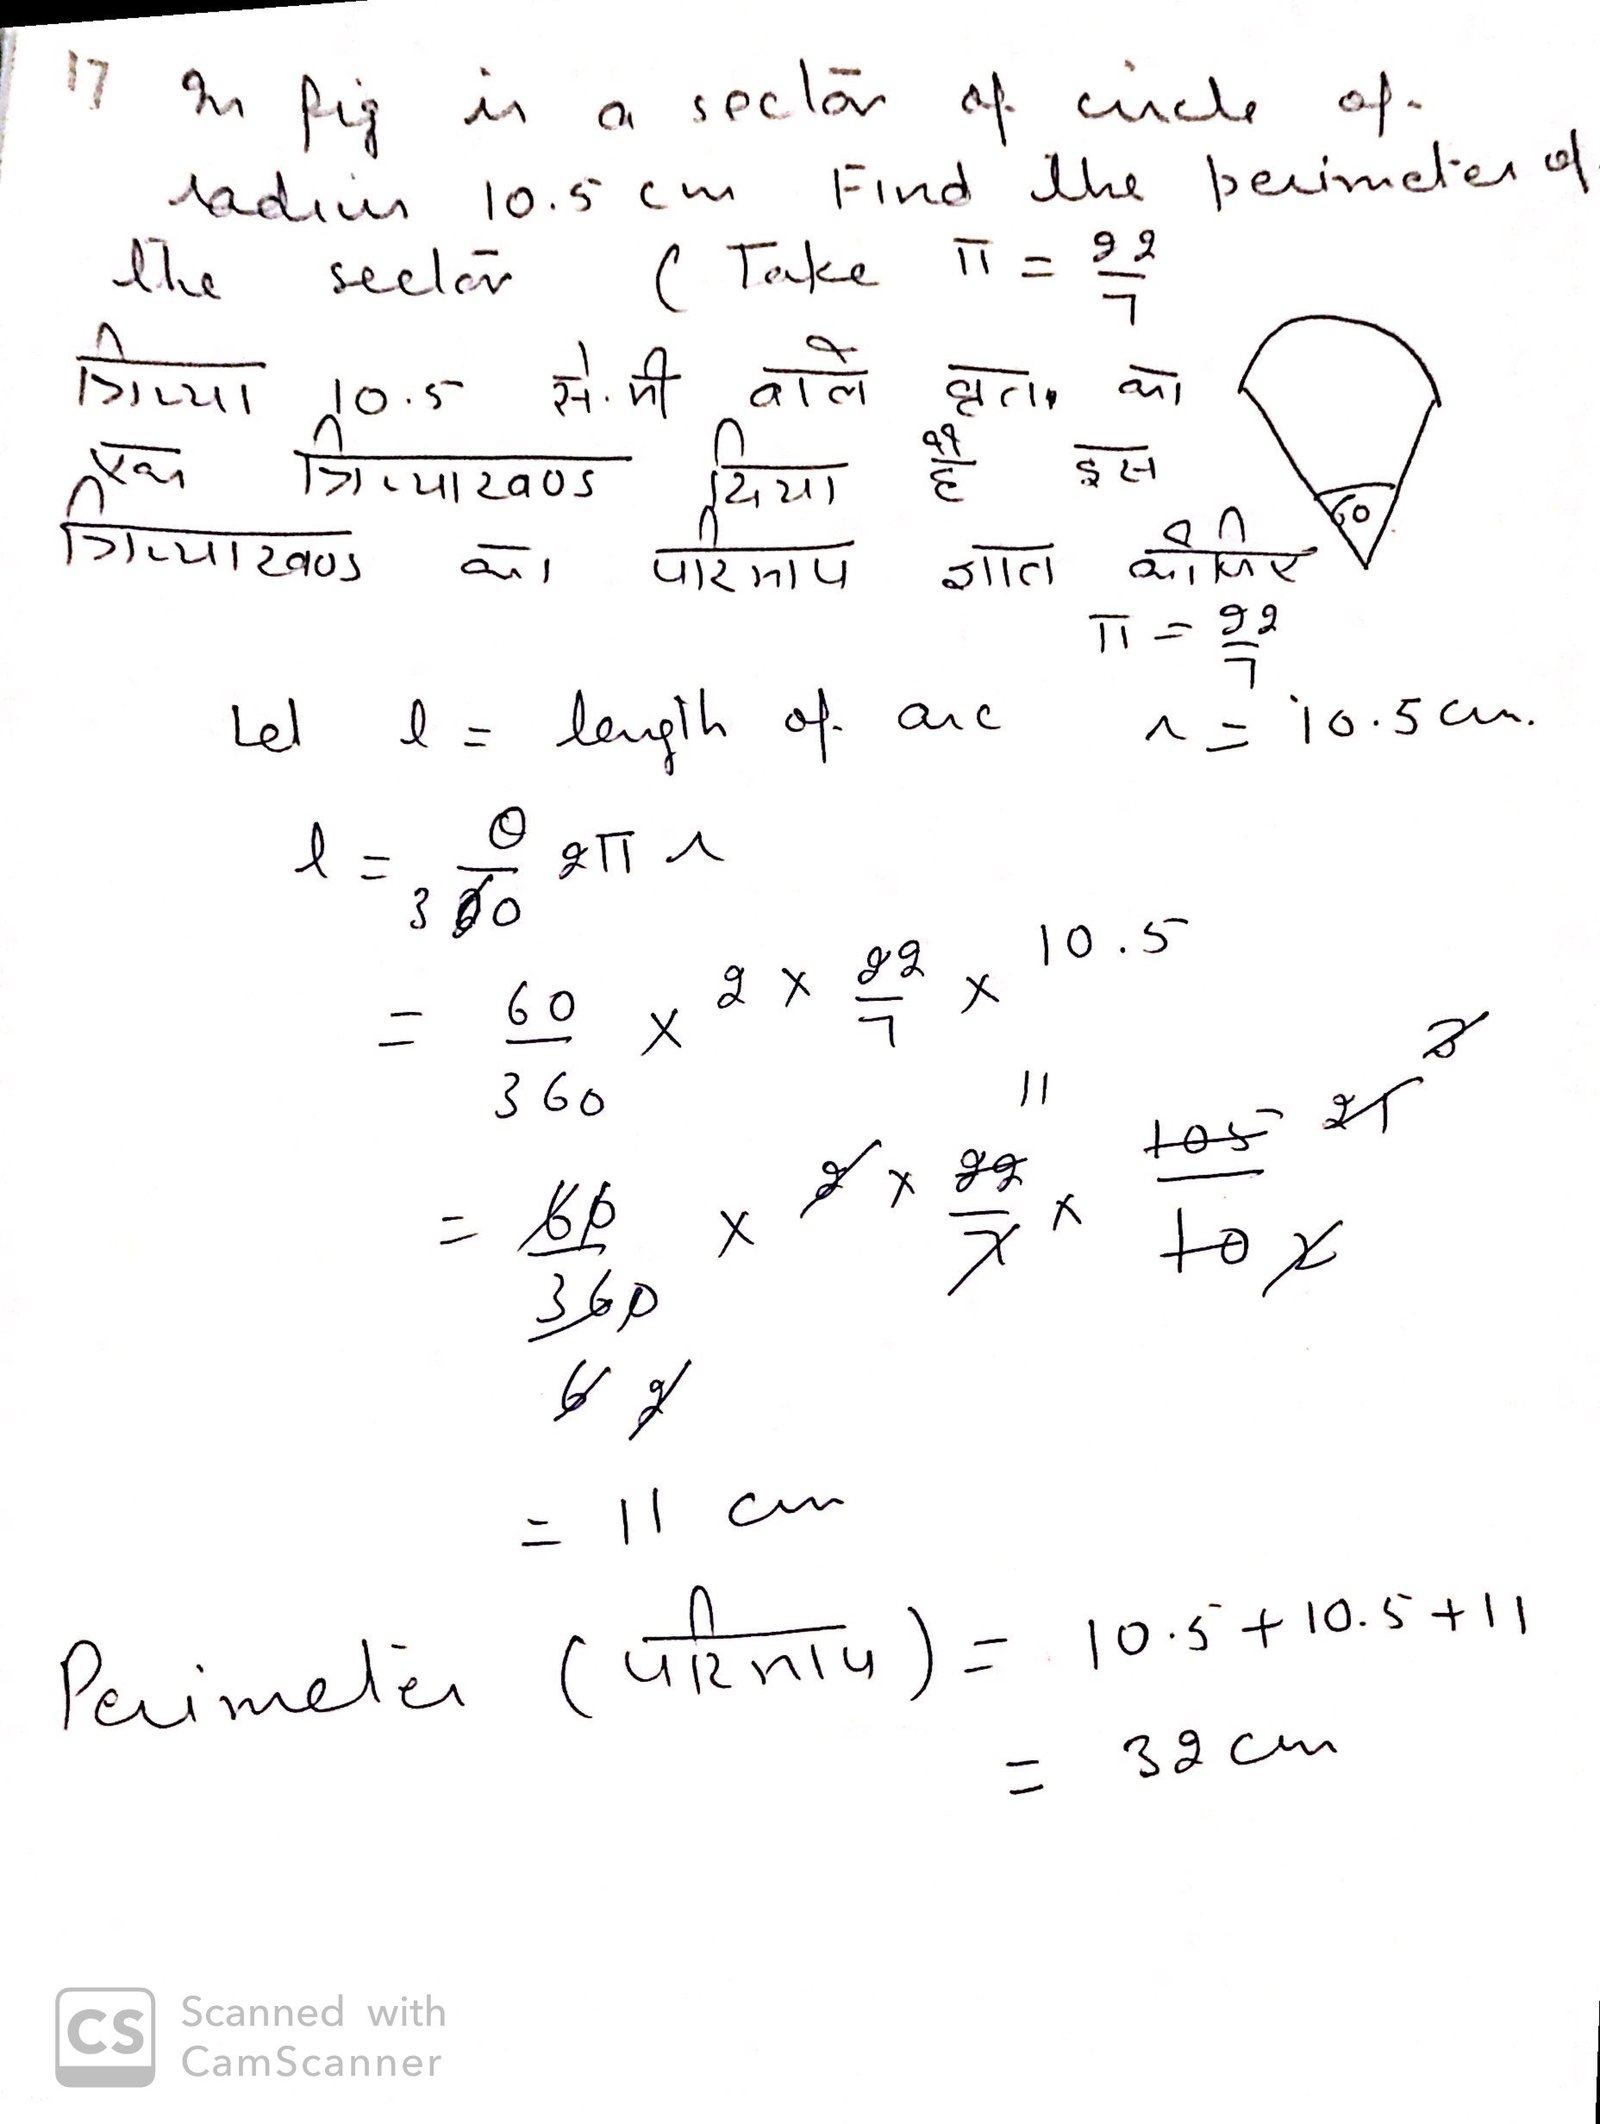 17 In fig is a sector of circle of
radius 10.5 cm Find the perimeter of
the sector ( Take π = 22/7
त्रिज्या 10.5 से.मी वाले वृत का
एक त्रिज्याखण्ड दिया है इस
60
त्रिज्याखण्ड का परिमाप ज्ञात कीजिए
π = 22/7
Let l = length of arc r = 10.5 cm.
l = θ/360 2π r
= 60/360 × 2 × 22/7 × 10.5
= 60/360 × 2 × 22/7 × 105/10
11 21 3
6 2 2
= 11 cm
Perimeter (परिमाप) = 10.5 + 10.5 + 11
= 32 cm
CS Scanned with
CamScanner